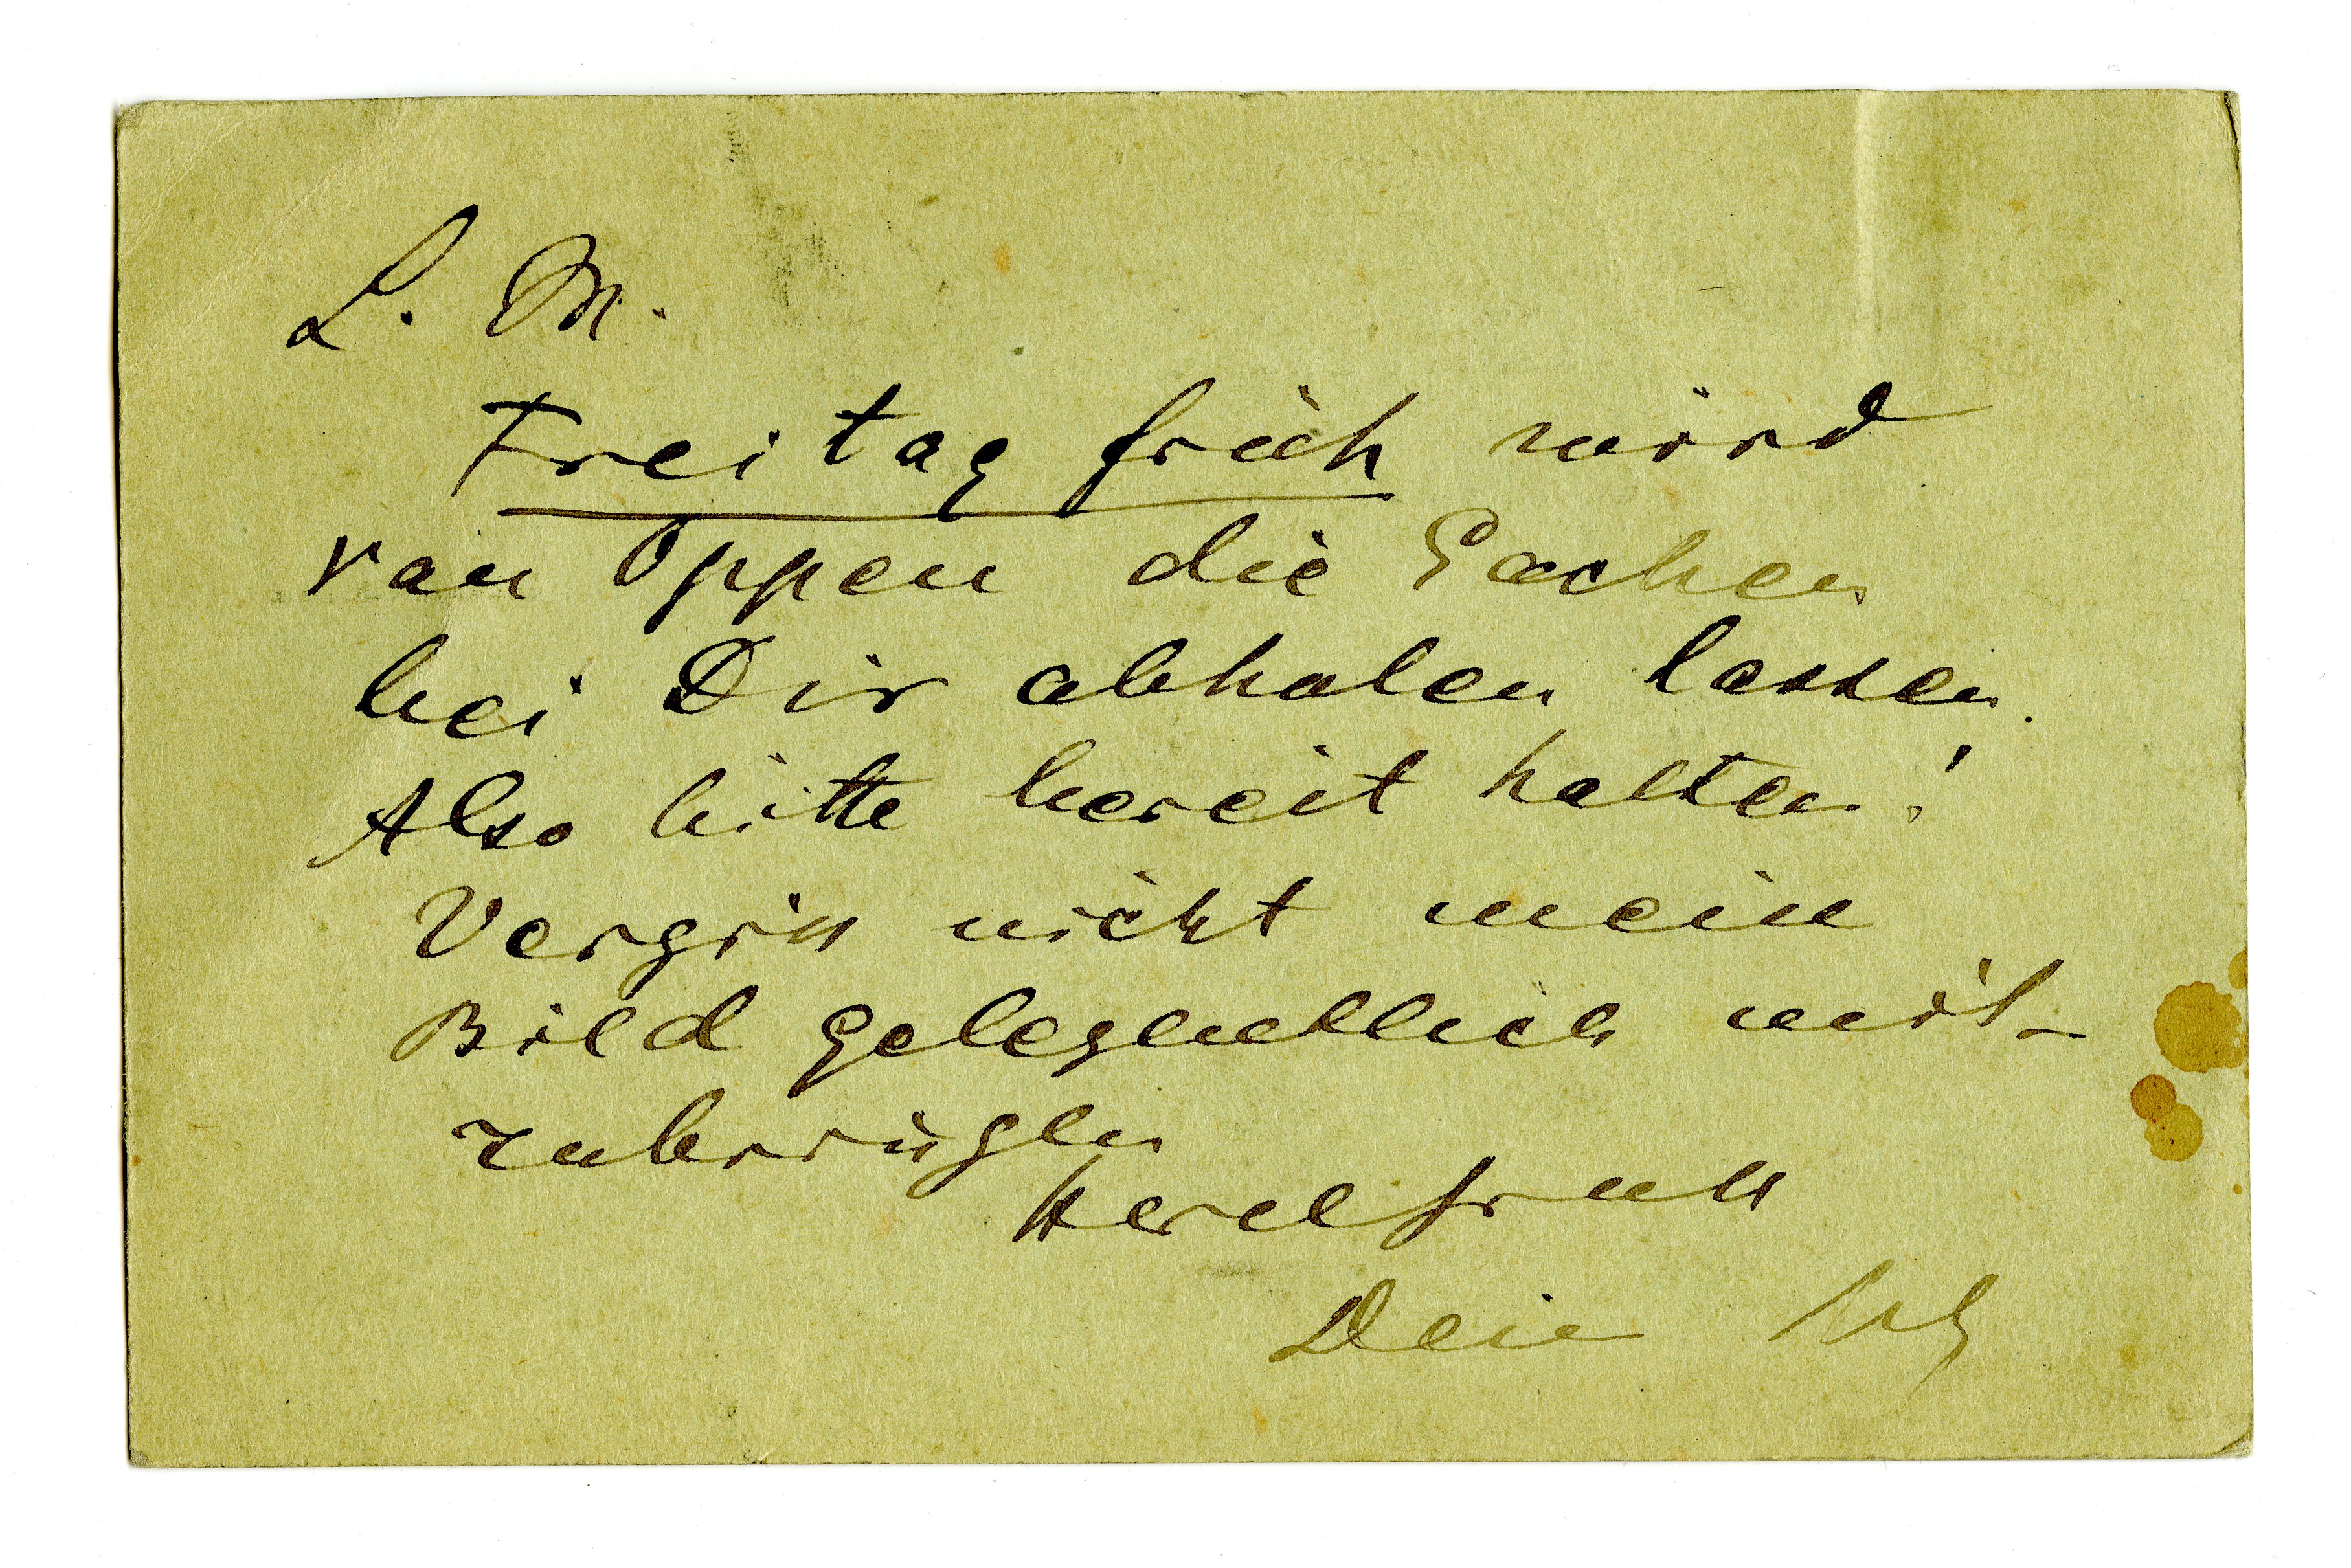 L. M.
Freitag früh wird
van Oppen die Sachen
bei Dir abholen lassen.
Also bitte bereit halten!
Vergiß nicht mein
Bild gelegentlich mit-
zubringen
Dein